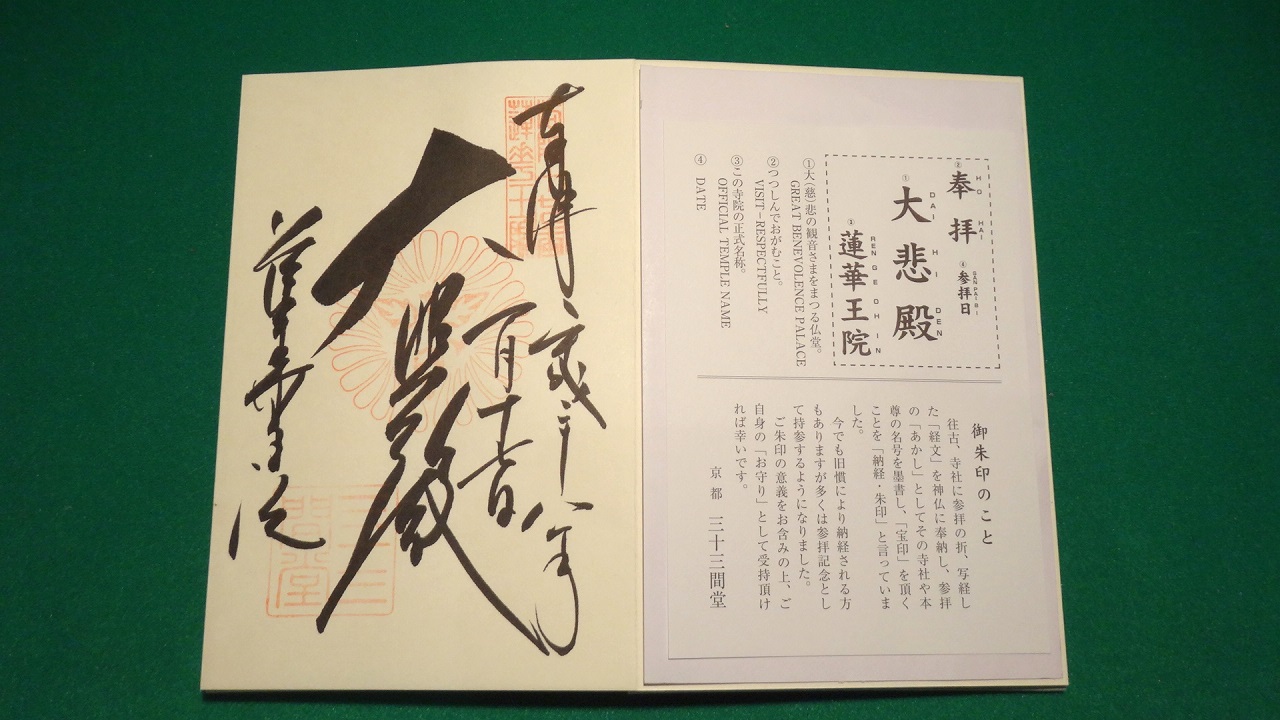 ② 奉拝
HO HAI
④ 参拝日
SAN PAI BI
① 大悲殿
DAI HI DEN
蓮華王院
REN GE OH IN
①大(慈)悲の観音さまをまつる仏堂。
GREAT BENEVOLENCE PALACE
②つつしんでおがむこと。
VISIT-RESPECTFULLY
③この寺院の正式名称。
OFFICIAL TEMPLE NAME
④ DATE
御朱印のこと
往古、寺社に参拝の折、写経し
た「経文」を神仏に奉納し、参拝
の「あかし」としてその寺社や本
尊の名号を墨書し、「宝印」を頂く
ことを「納経・朱印」と言っていま
した。
今でも旧慣により納経される方
もありますが多くは参拝記念とし
て持参するようになりました。
ご朱印の意義をお含みの上、ご
自身の「お守り」として受持頂け
れば幸いです。
京都 三十三間堂
奉拝
二十八年
大悲殿
蓮華王院
三十三間堂